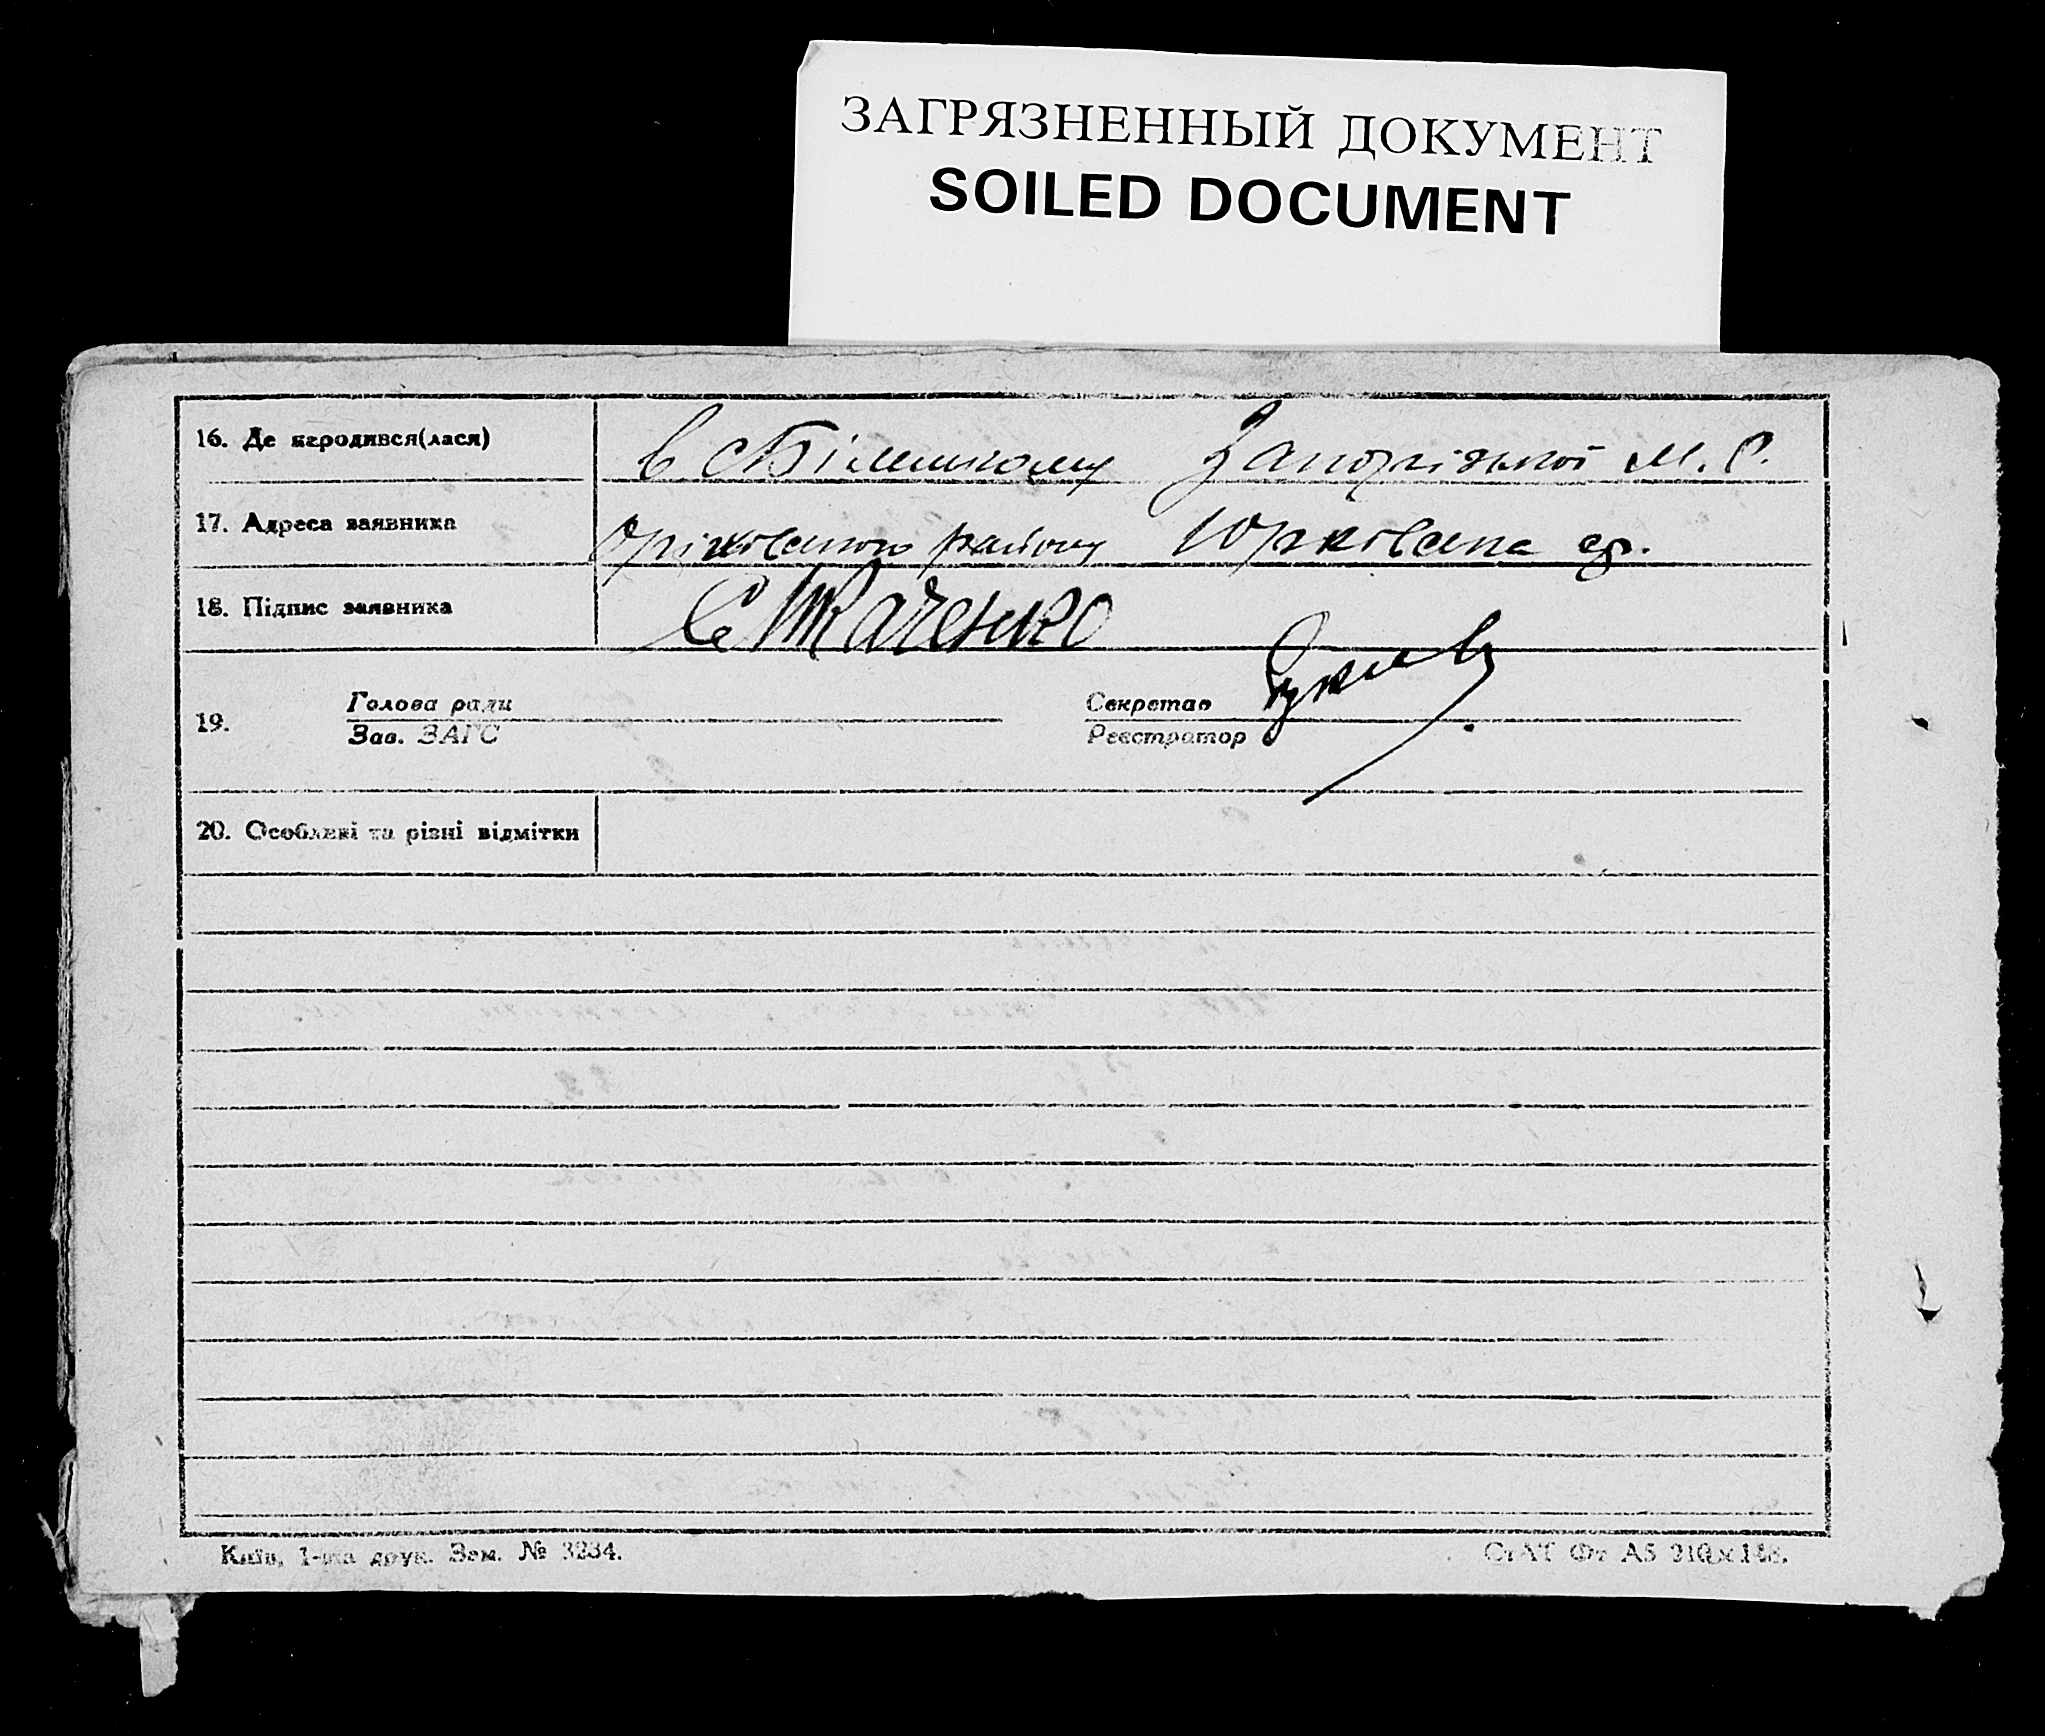 ЗАГРЯЗНЕННЫЙ ДОКУМЕНТ
SOILED DOCUMENT
16. Де народився(лася) в с Запорізької м. Р.
17. Адреса заявника Оріхівського району Юрківська ср.
18. Підпис заявника Є Ткаченко
19. Голова ради Секретар
Зав. ЗАГС Реєстратор
20. Особливі та різні відмітки
Київ, 1-ша друк. Зам. № 3234. СтАТ Фт А5 210×148.